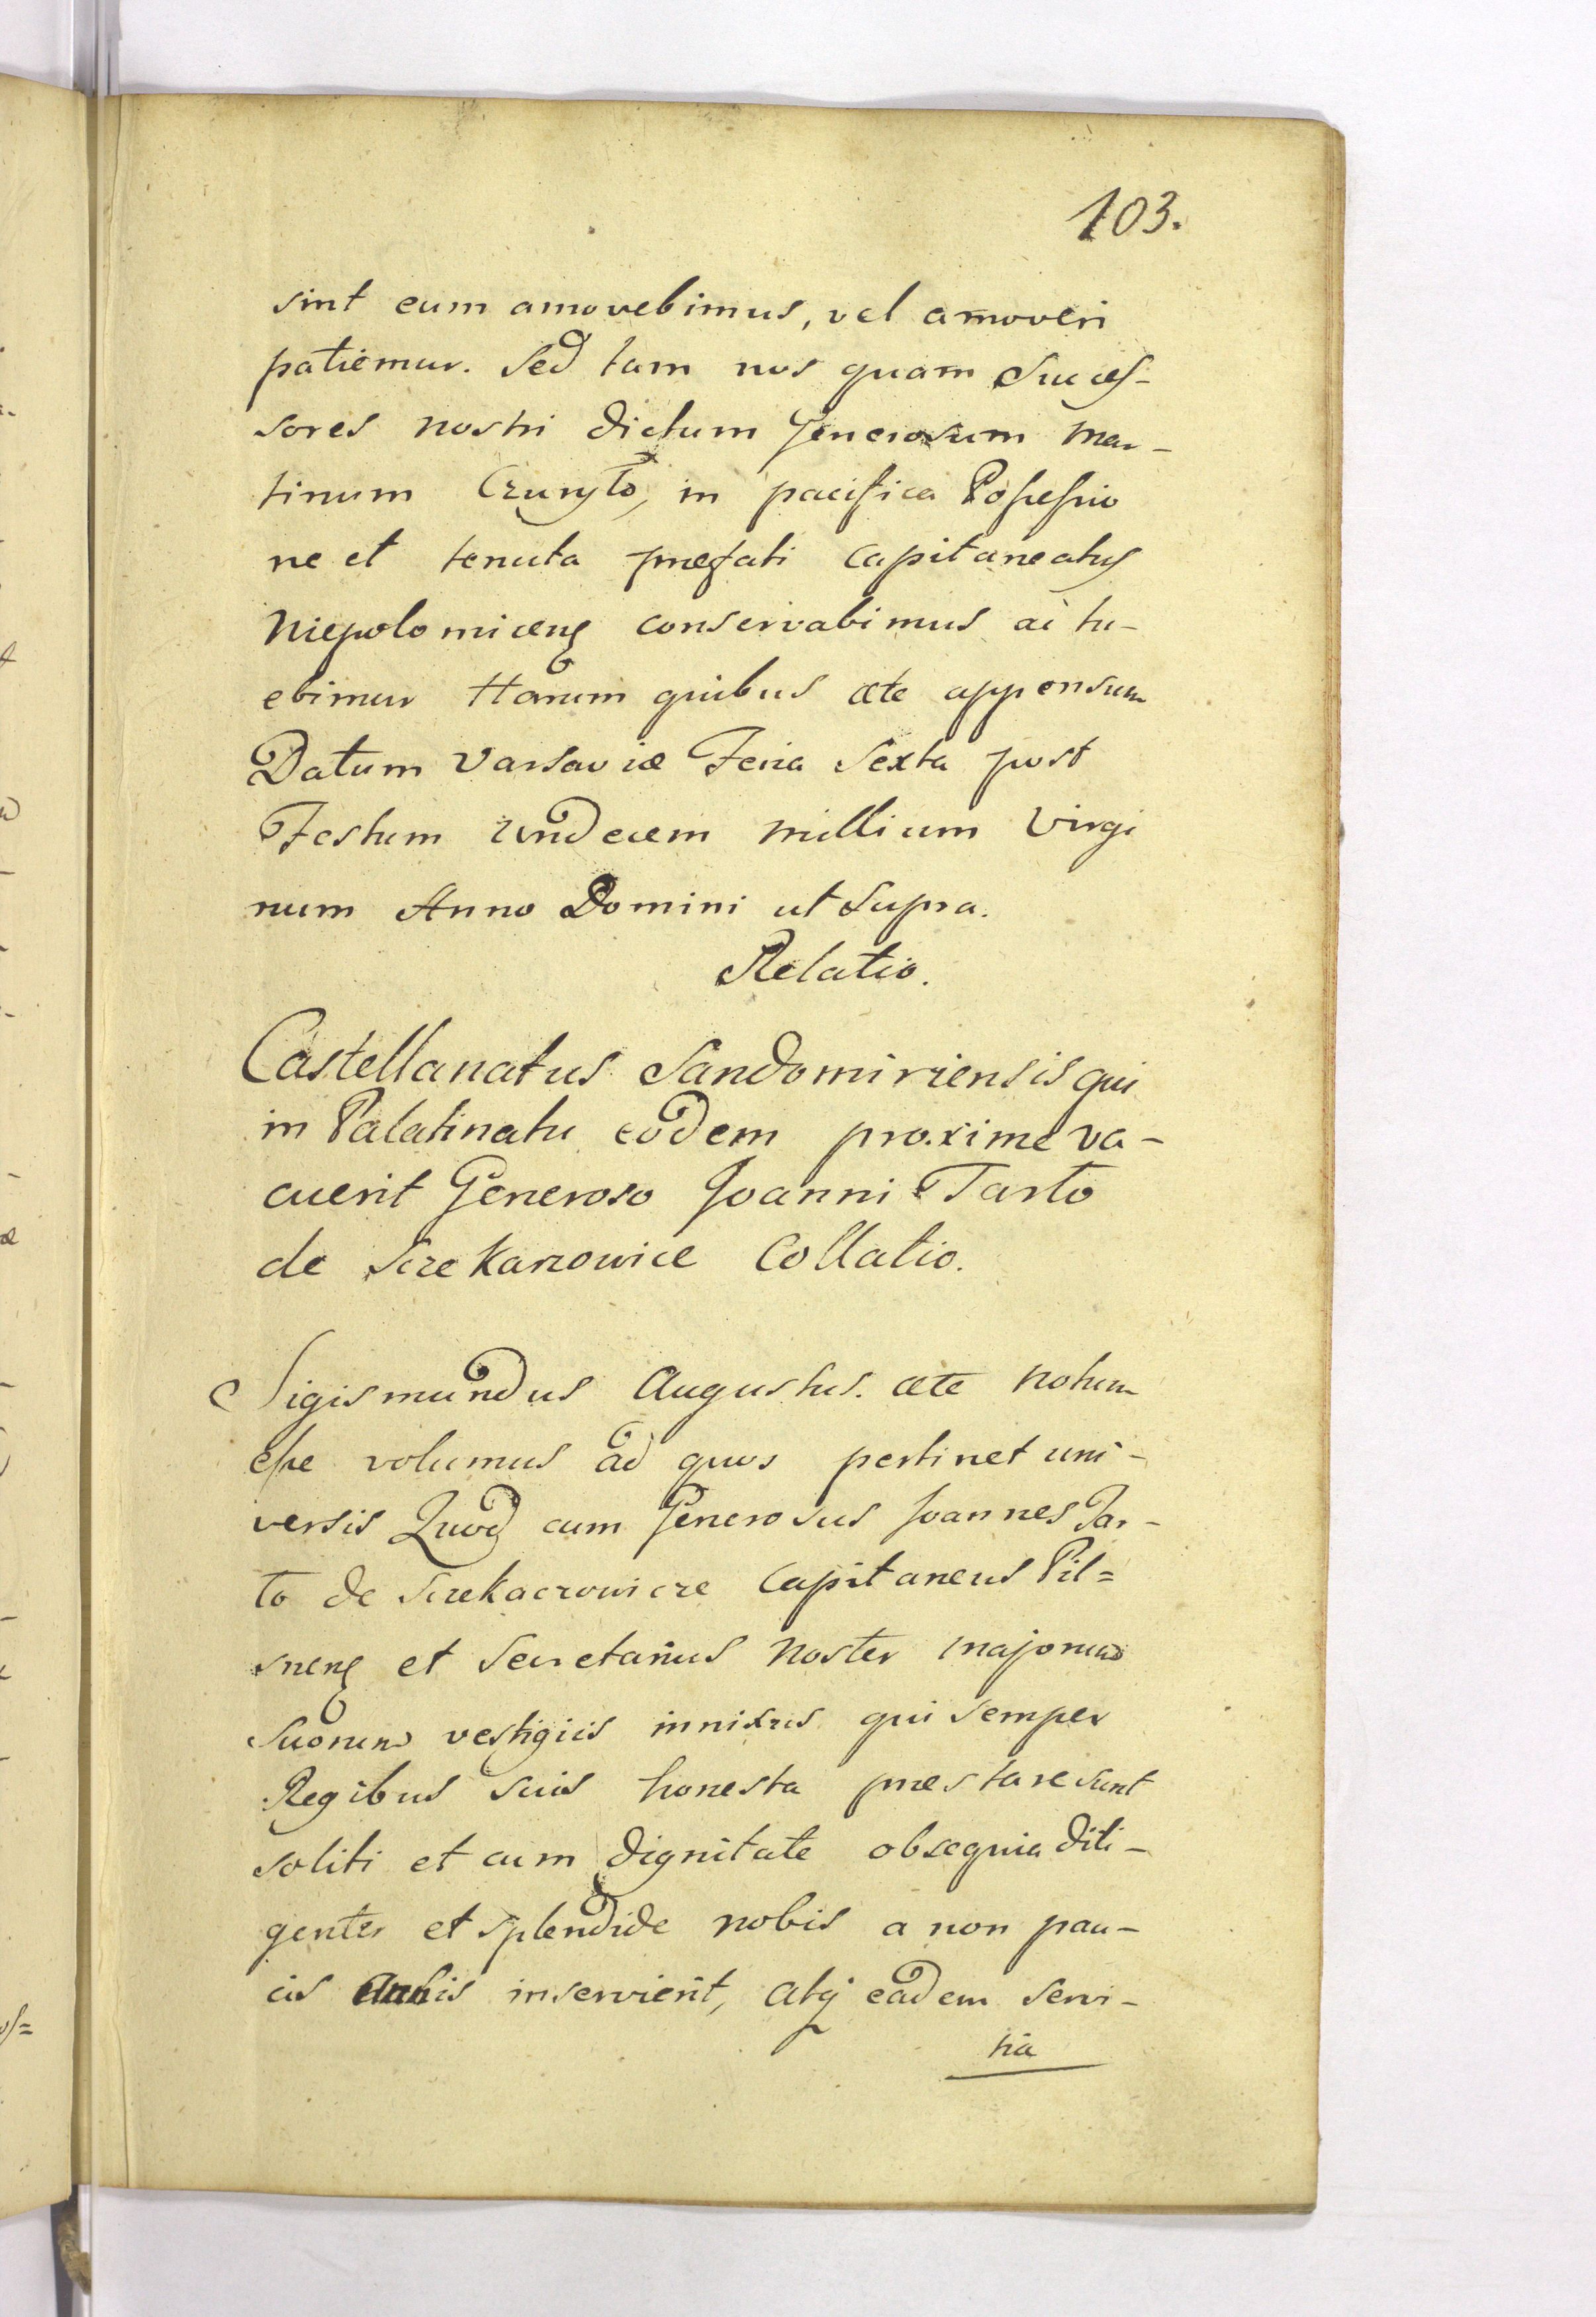 103.
sint eum amovebimus, vel amoveri
patiemur. Sed tam nos quam Succes-
sores nostri dictum Generosum Mar-
tinum Czuryło, in pacifica Possessio
ne et tenuta præfati Capitaneatus
Niepolomicens conservabimus ac tu-
ebimur Harum quibus ætc appensum
Datum Varsaviæ Feria Sexta post
Festum Undecem millium Virgi
num Anno Domini ut Supra.
Relatio.
Castellanatus Sandomiriensis qui
in Palatinatu eodem proxime va-
cuerit Generoso Joanni Tarło
de Sczekarzowice Collatio.
Sigismundus Augustus. ætc notum
esse volumus ad quos pertinet uni-
versis Quod cum Generosus Joannes Tar-
ło de Sczekaczowicze Capitaneus Pil=
snens et Secretarius Noster majorum
Suorum vestigiis innixus qui semper
Regibus suis honesta præstare sunt
soliti et cum dignitate obsequia dili-
genter et splendide nobis a non pau-
cis Annis inservierit, atq eadem servi-
tia